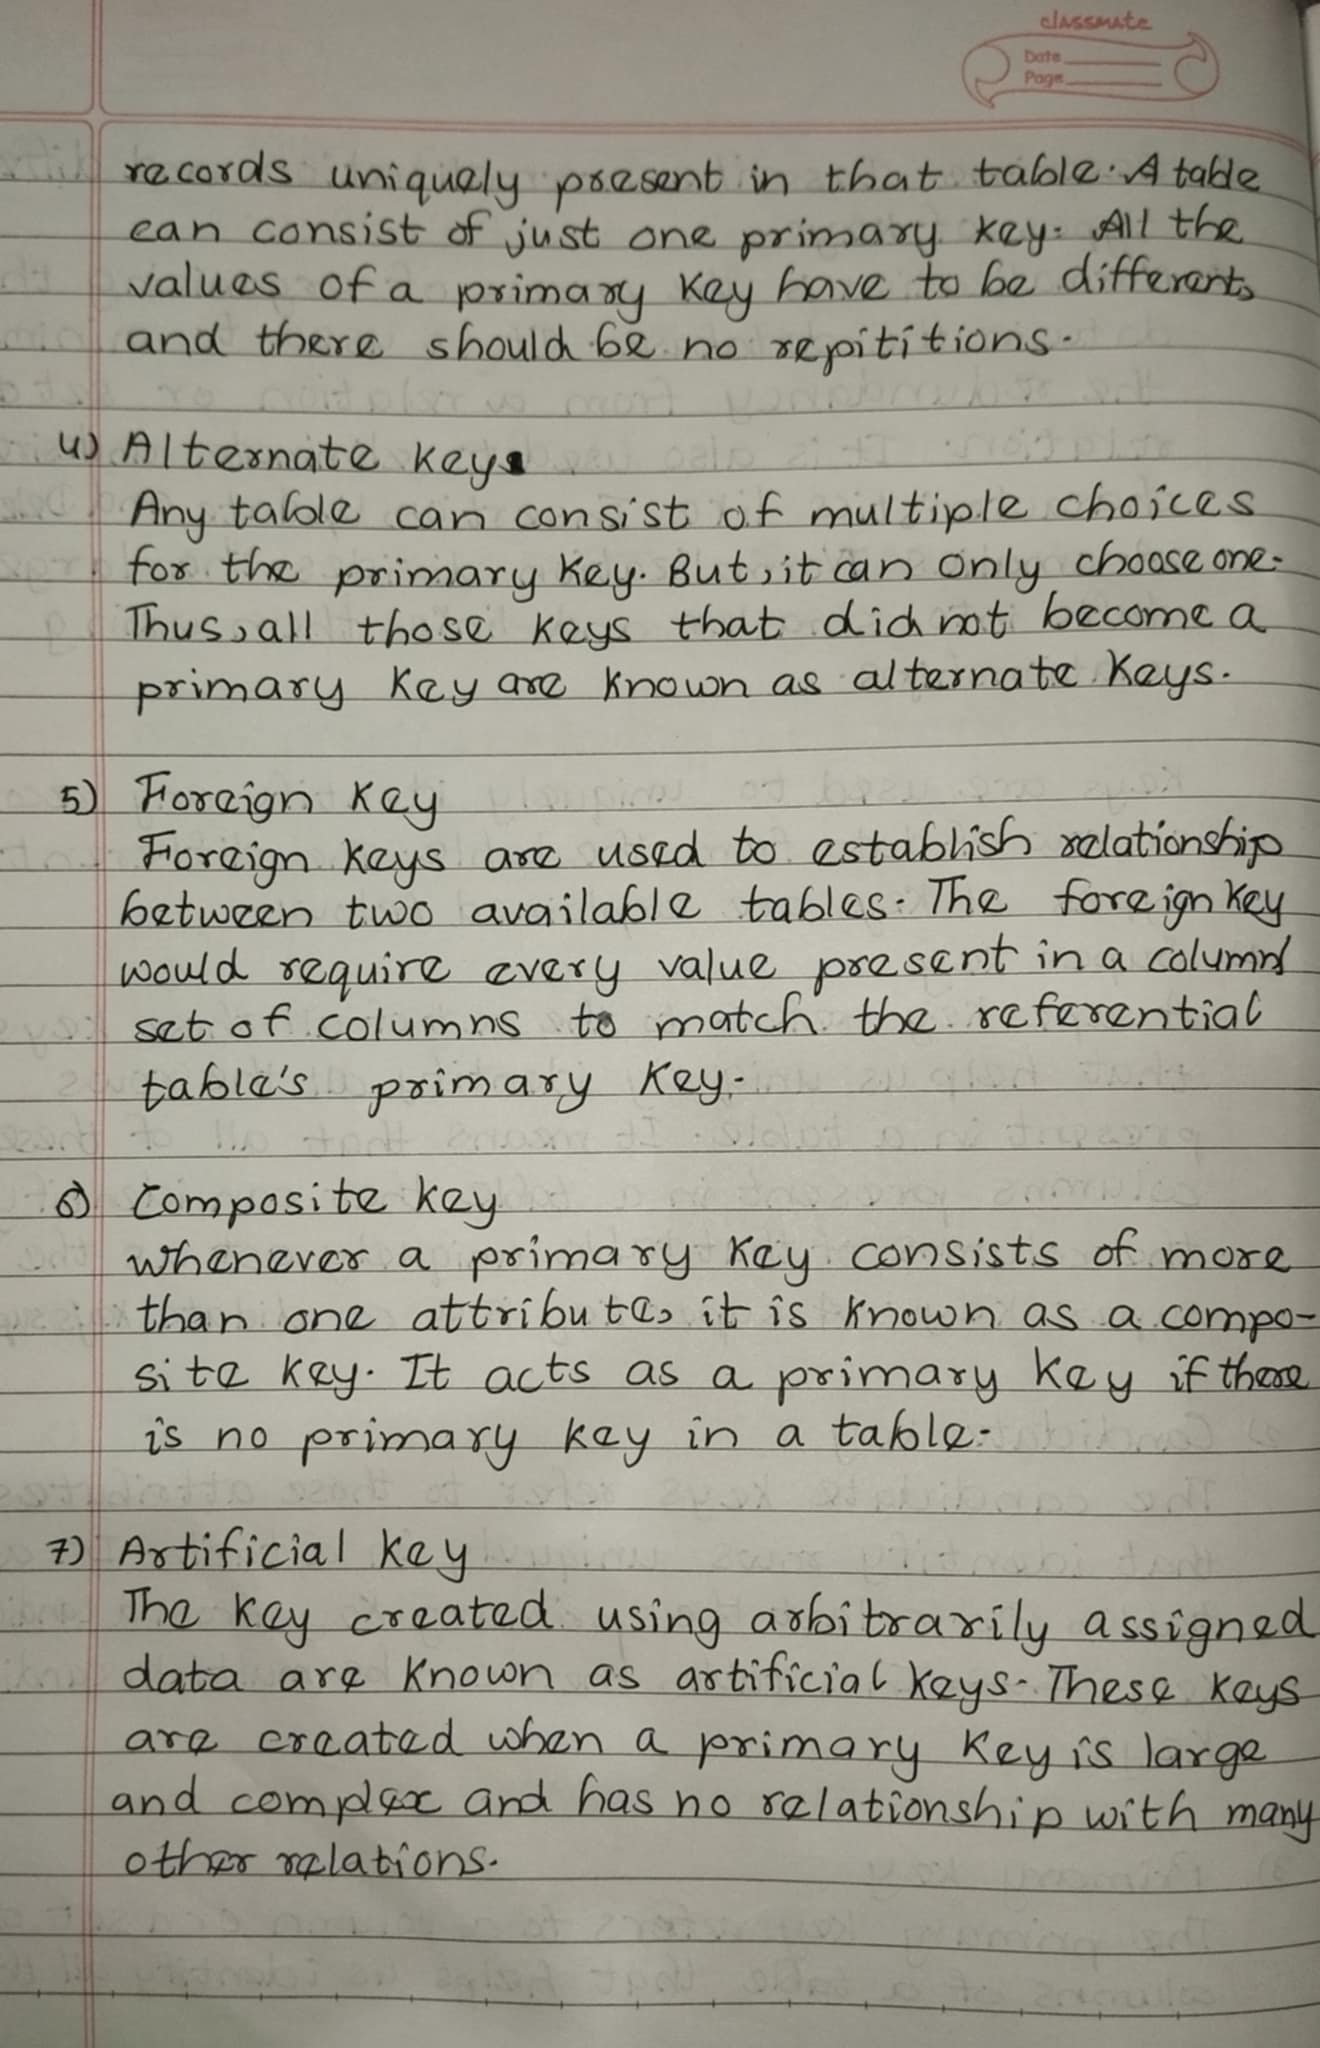 classmate
Date
Page
records uniquely present in that table. A table
can consist of just one primary key. All the
values of a primary key have to be different,
and there should be no repititions.
4) Alternate key
Any table can consist of multiple choices
for the primary key. But, it can only choose one.
Thus, all those keys that did not become a
primary key are known as alternate keys.
5) Foreign key
Foreign keys are used to establish relationship
between two available tables. The foreign key
would require every value present in a column/
set of columns to match the referential
table's primary key.
6) Composite key
whenever a primary key consists of more
than one attribute, it is known as a compo-
site key. It acts as a primary key if there
is no primary key in a table.
7) Artificial key
The key created using arbitrarily assigned
data are known as artificial keys. These keys
are created when a primary key is large
and complex and has no relationship with many
other relations.